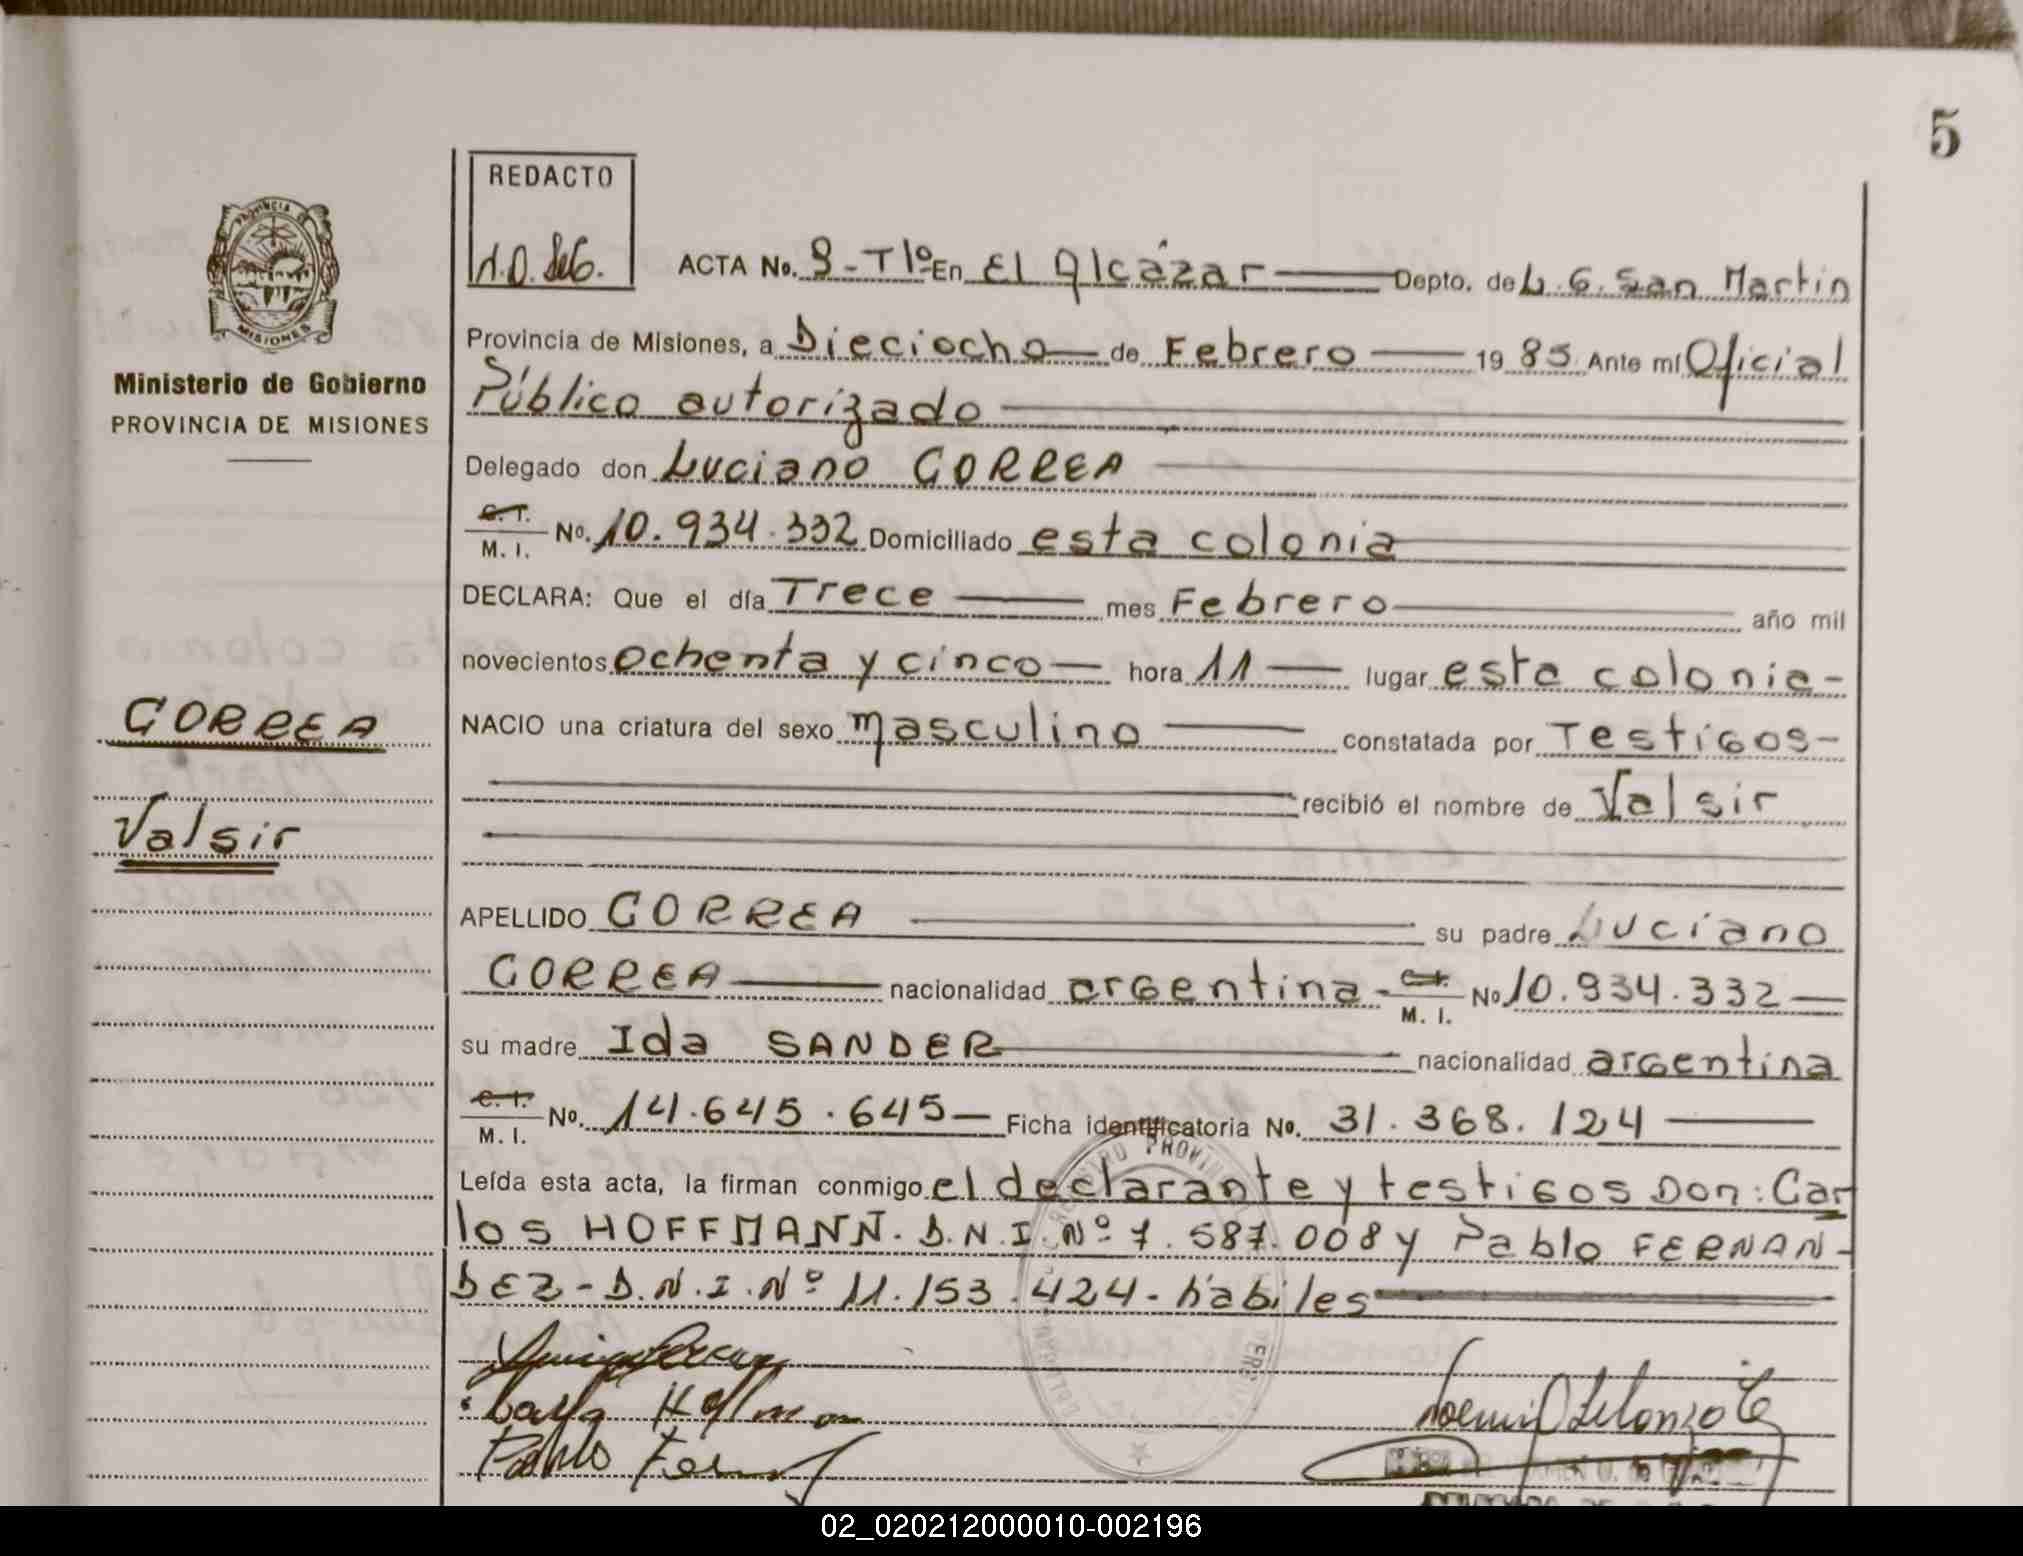 5
REDACTO
N.O. de G.
PROVINCIA DE
MISIONES
Ministerio de Gobierno
PROVINCIA DE MISIONES
ACTA No. 9 - Tº En El Alcázar Depto. de L. G. San Martin
Provincia de Misiones, a Dieciocho de Febrero 19 85 Ante mí Oficial
Público autorizado
Delegado don Luciano CORREA
C. I. M. I. No. 10.934.332 Domiciliado esta colonia
DECLARA: Que el día Trece mes Febrero año mil
novecientos ochenta y cinco hora 11 lugar esta colonia -
CORREA
NACIO una criatura del sexo masculino constatada por Testigos -
recibió el nombre de Valsir
Valsir
APELLIDO CORREA su padre Luciano
CORREA nacionalidad argentina - C. I. M. I. No 10.934.332
su madre Ida SANDER nacionalidad argentina
C. I. M. I. No. 14.645.645 Ficha identificatoria No. 31.368.124
Leída esta acta, la firman conmigo el declarante y testigos Don: Car
los HOFFMANN. D.N.I. Nº 7.587.008 y Pablo FERNAN-
DEZ - D.N.I. Nº 11.153.424 - hábiles
REGISTRO PROVINCIAL
Pablo
02_020212000010-002196